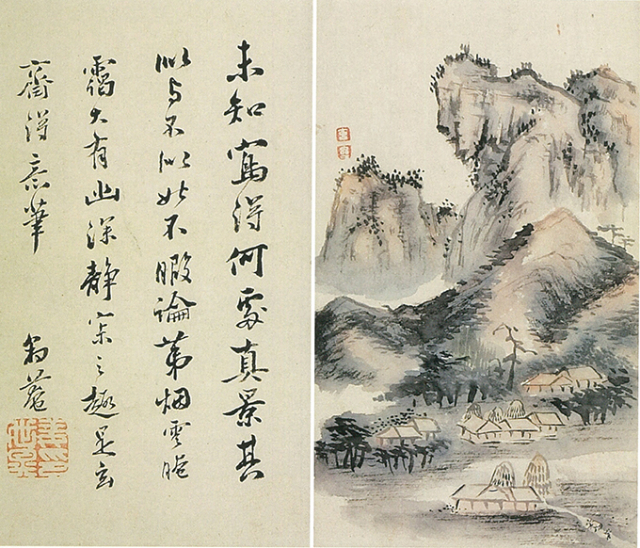 未知寫得何處真景其
似与不似姑不暇論第烟雲晻
靄大有幽深靜寂之趣是玄
齋得意筆
豹菴